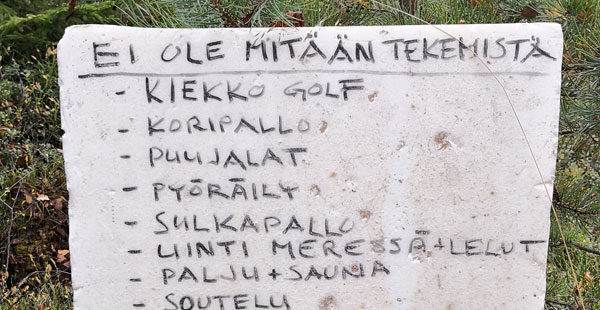 EI OLE MITÄÄN TEKEMISTÄ
- KIEKKO GOLF
- KORIPALLO
- PUUJALAT
- PYÖRÄILY
- SULKAPALLO
- UINTI MERESSÄ+LELUT
- PALJU+SAUNA
- SOUTELU